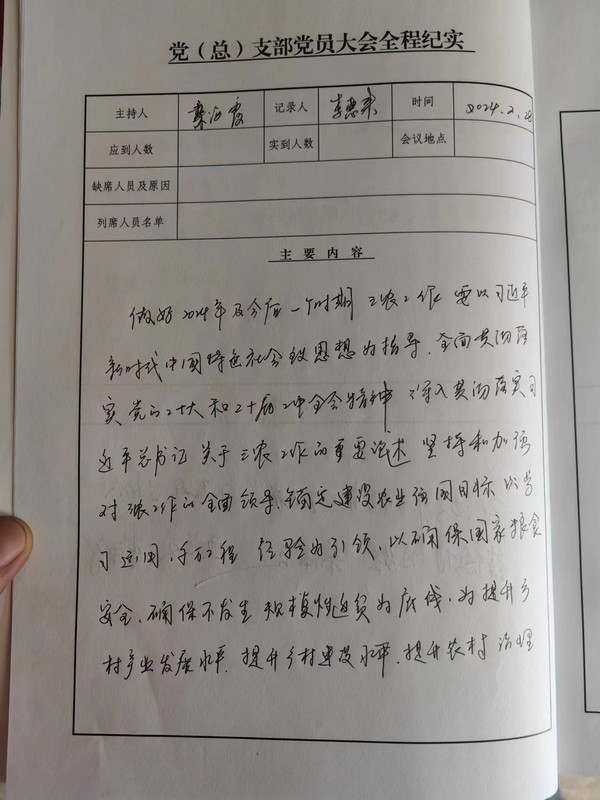 党（总）支部党员大会全程纪实
主持人 秦海霞 记录人 李惠来 时间 2024.2.
应到人数 实到人数 会议地点
缺席人员及原因
列席人员名单
主要内容
做好2024年及今后一个时期三农工作 要以习近平
新时代中国特色社会主义思想为指导.全面贯彻落
实党的二十大和二十届二中全会精神 深入贯彻落实习
近平总书记关于三农工作的重要论述 坚持和加强
对三农工作的全面领导.锚定建设农业强国目标 以学
习运用.千万工程 经验为引领,以确保国家粮食
安全.确保不发生规模性返贫为底线,为提升乡
村产业发展水平.提升乡村建设水平.提升农村治理